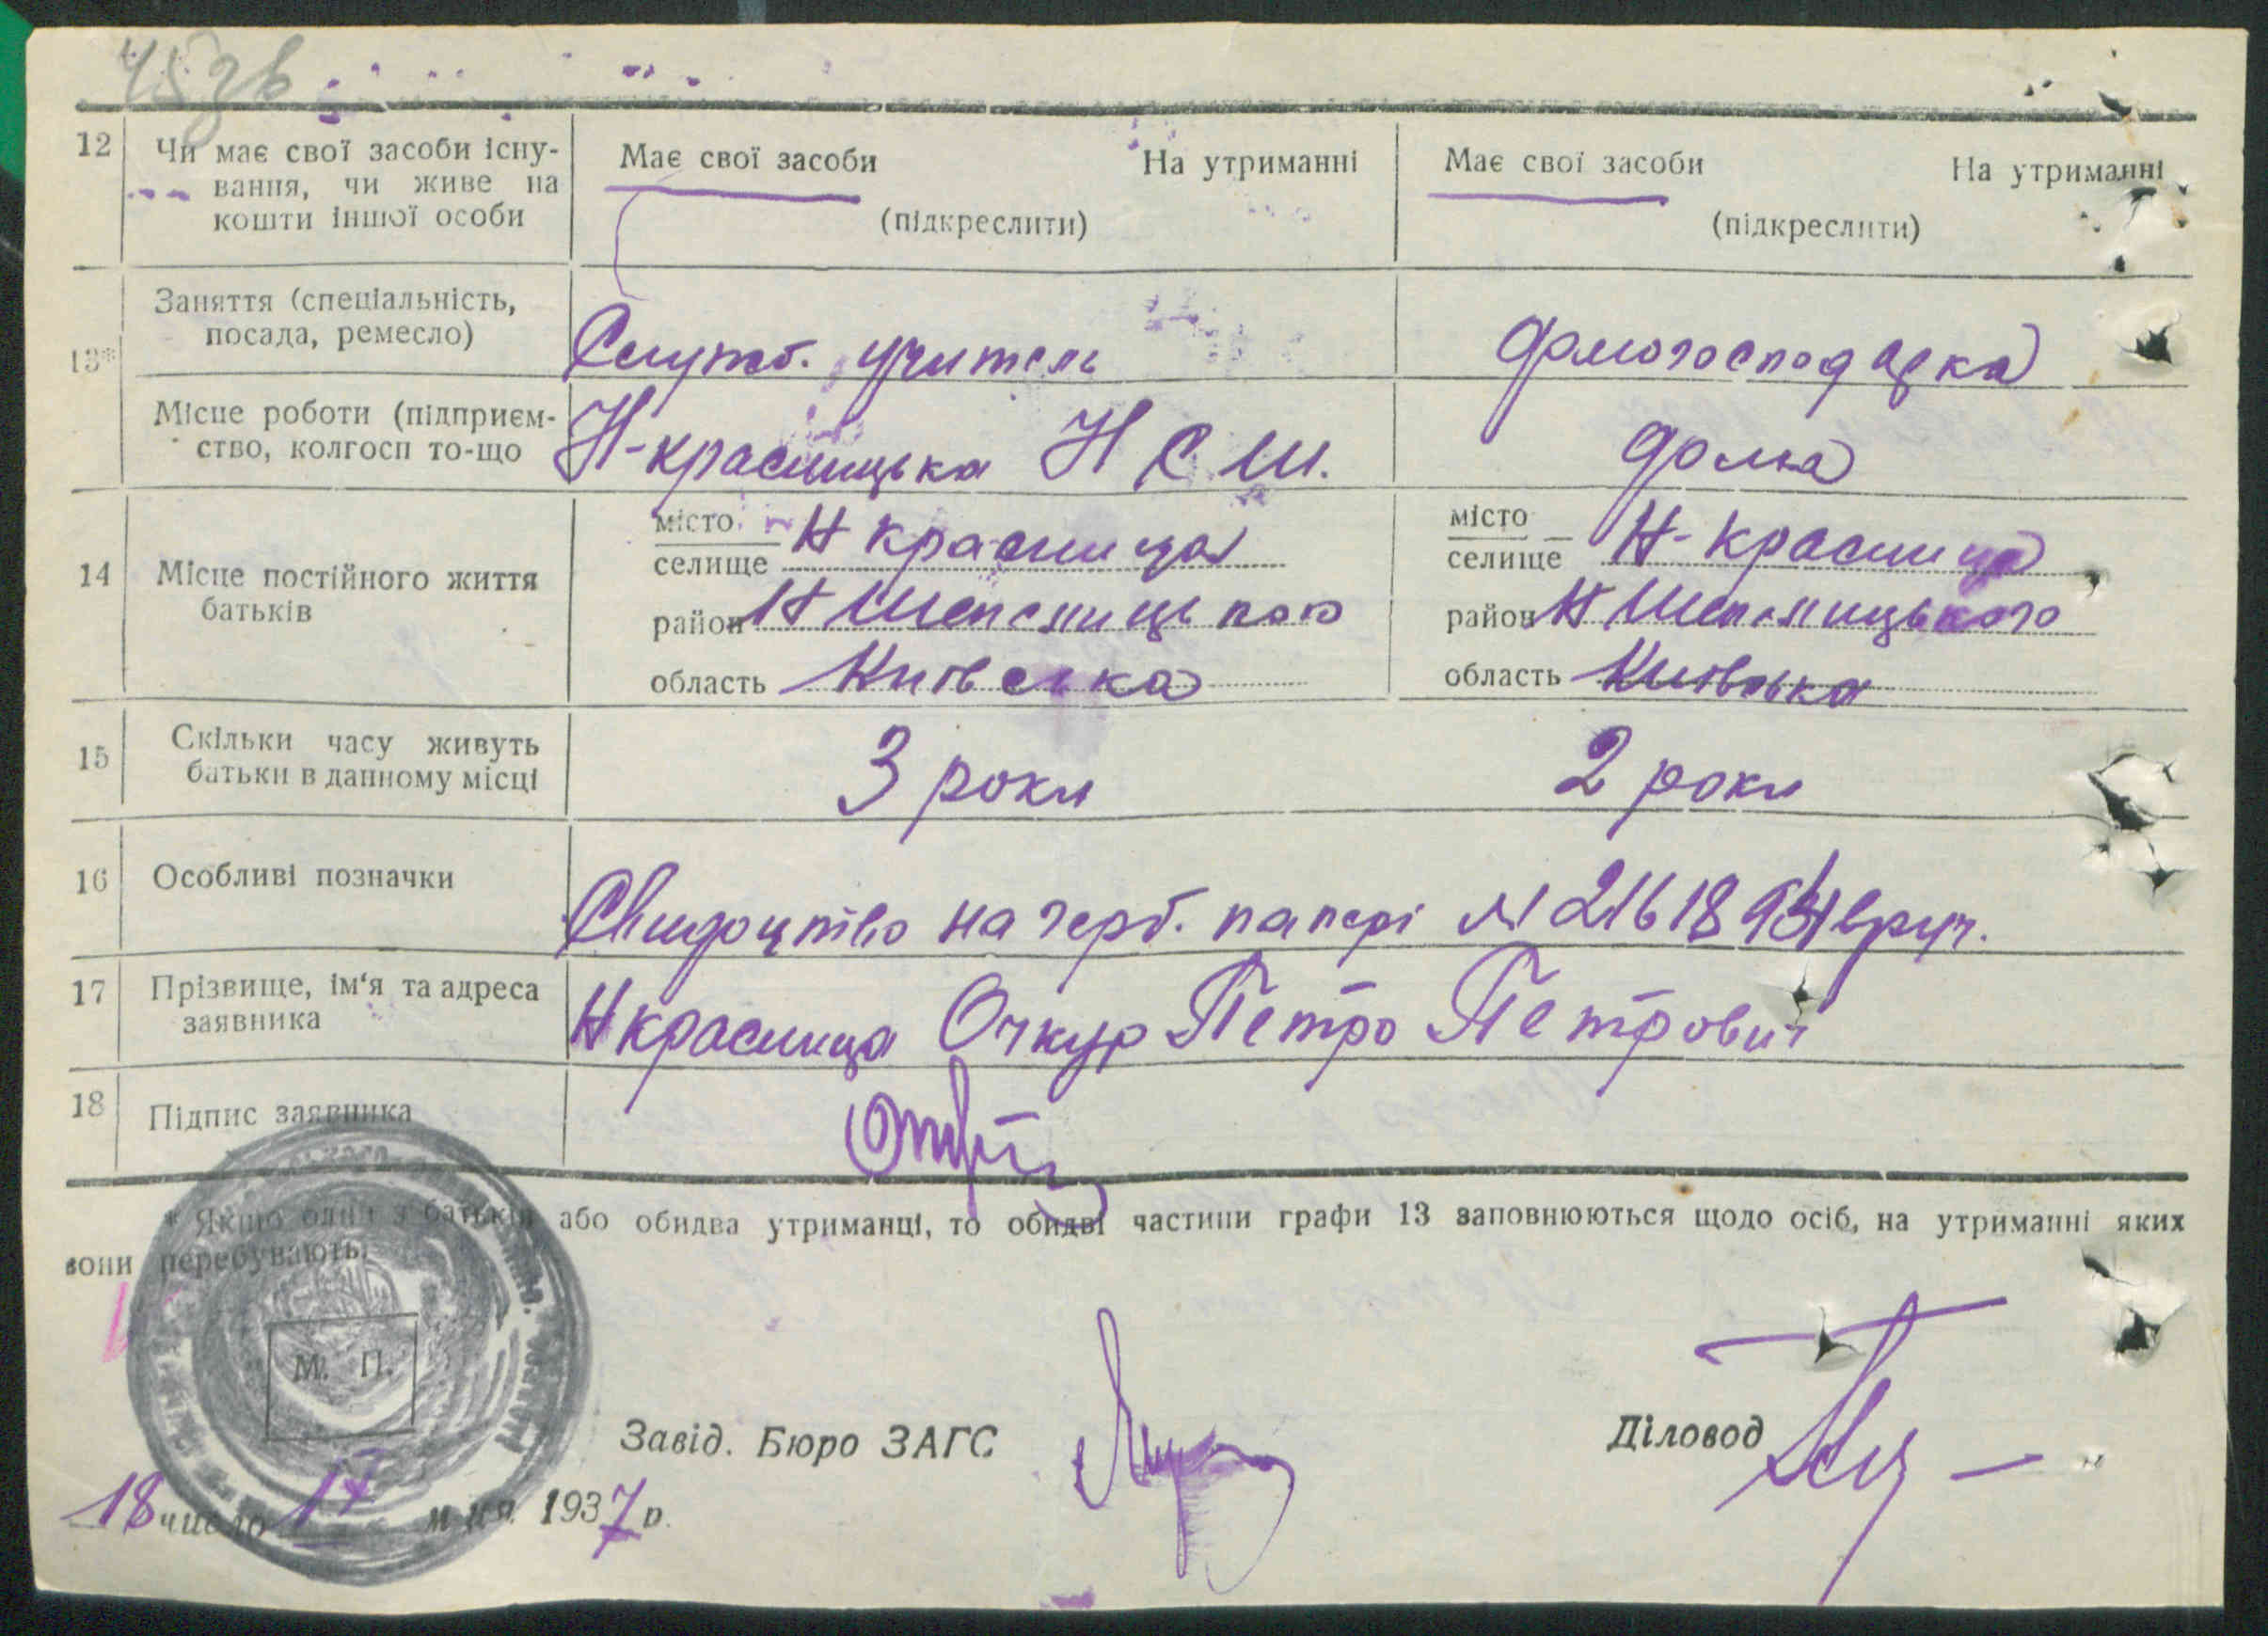 12 Чи має свої засоби існу- Має свої засоби На утриманні Має свої засоби На утриманні
вання, чи живе на
кошти іншої особи (підкреслити) (підкреслити)
Заняття (спеціальність,
посада, ремесло) Служб. учитель домогосподарка
13*
Місце роботи (підприєм-
ство, колгосп то-що Н-красницька Н С Ш. дома
місто Н красниця місто Н-красниця
селище селище
14 Місце постійного життя
батьків район Н Шепелицького район Н Шепелицького
область Київська область Київська
15 Скільки часу живуть
батьки в данному місці 3 роки 2 роки
16 Особливі позначки Свидоцтво на герб. папері №
17 Прізвище, ім'я та адреса
заявника Н красница Очкур Петро Петрович
18 Підпис заявника
* Якщо один з батьків або обидва утриманці, то обидві частини графи 13 заповнюються щодо осіб, на утриманні яких
вони перебувають.
М. П.
Завід. Бюро ЗАГС Діловод
18 число м-ця 1937 р.